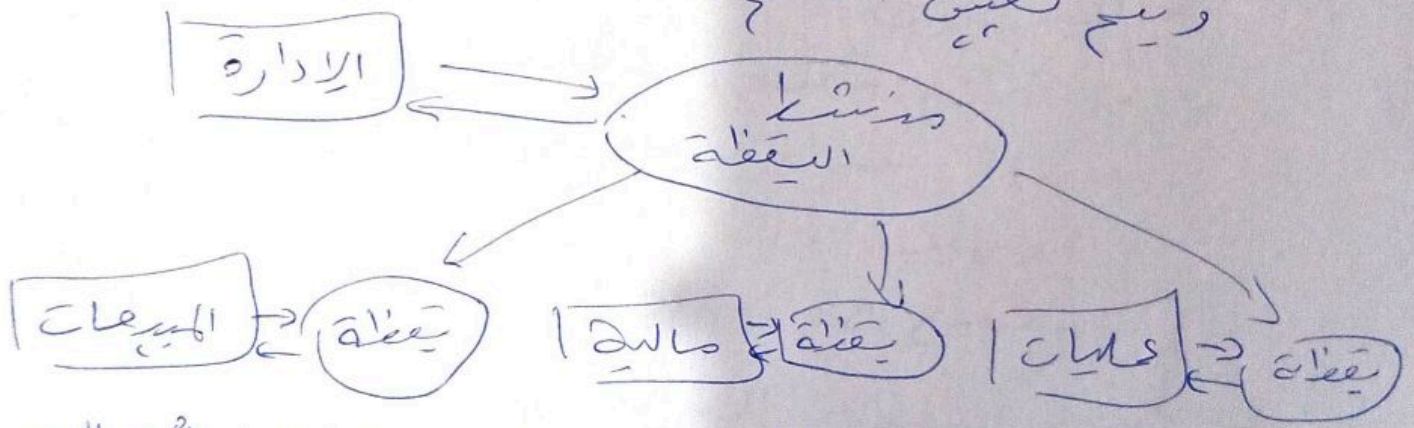 ويتم تعيين
الإدارة
منشط
اليقظة
المبيعات
يقظة
مالية
يقظة
عمليات
يقظة